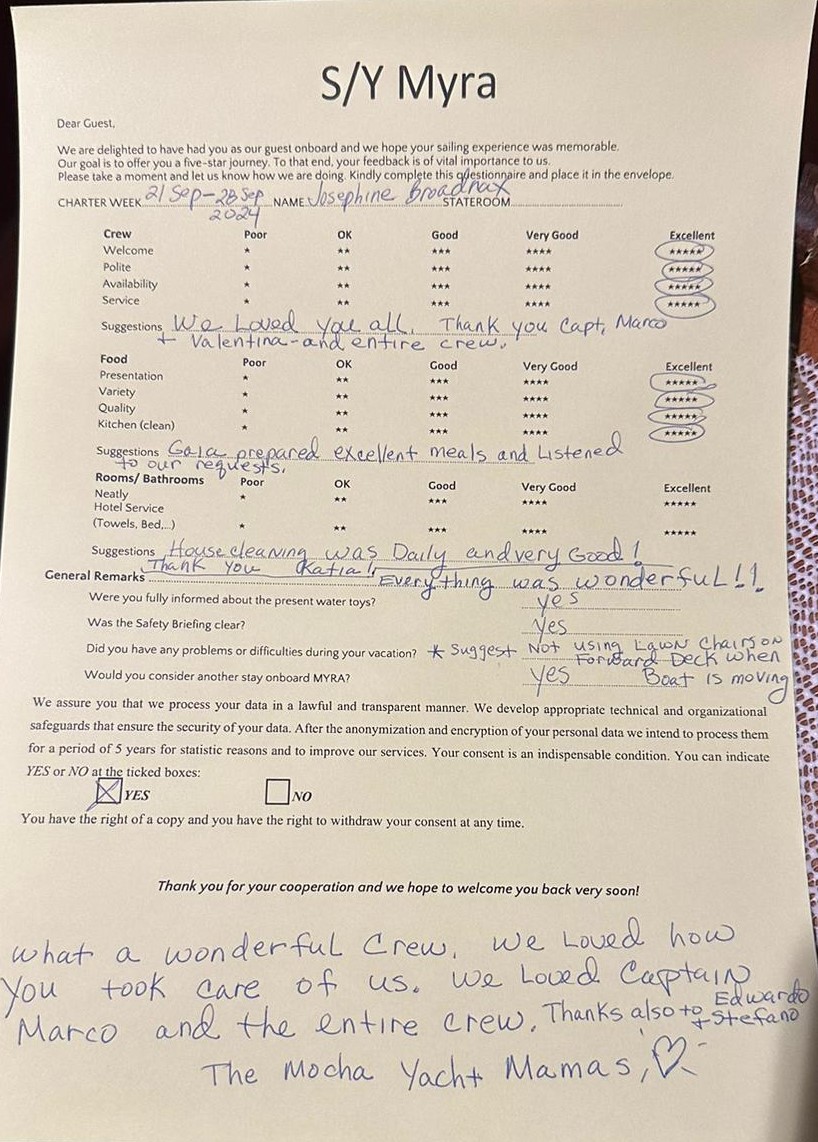 S/Y Myra
Dear Guest,
We are delighted to have had you as our guest onboard and we hope your sailing experience was memorable.
Our goal is to offer you a five-star journey. To that end, your feedback is of vital importance to us.
Please take a moment and let us know how we are doing. Kindly complete this questionnaire and place it in the envelope.
CHARTER WEEK 21 Sep-28 Sep 2024 NAME Josephine Broadnax STATEROOM
Crew Poor OK Good Very Good Excellent
Welcome * ** *** **** *****
Polite * ** *** **** *****
Availability * ** *** **** *****
Service * ** *** **** *****
Suggestions We Loved you all. Thank you Capt, Marco
+ Valentina-and entire crew.
Food Poor OK Good Very Good Excellent
Presentation * ** *** **** *****
Variety * ** *** **** *****
Quality * ** *** **** *****
Kitchen (clean) * ** *** **** *****
Suggestions Gaia prepared excellent meals and Listened
to our requests.
Rooms/ Bathrooms Poor OK Good Very Good Excellent
Neatly * ** *** **** *****
Hotel Service
(Towels, Bed,...) * ** *** **** *****
Suggestions House cleaning was Daily and very Good!
Thank you Katia!
General Remarks Everything was wonderful!!!
Were you fully informed about the present water toys? yes
Was the Safety Briefing clear? Yes
Did you have any problems or difficulties during your vacation? * Suggest Not using Lawn Chairs on
Forward Deck when
Boat is moving
Would you consider another stay onboard MYRA? Yes
We assure you that we process your data in a lawful and transparent manner. We develop appropriate technical and organizational
safeguards that ensure the security of your data. After the anonymization and encryption of your personal data we intend to process them
for a period of 5 years for statistic reasons and to improve our services. Your consent is an indispensable condition. You can indicate
YES or NO at the ticked boxes:
YES NO
You have the right of a copy and you have the right to withdraw your consent at any time.
Thank you for your cooperation and we hope to welcome you back very soon!
What a wonderful Crew. We Loved how
You took care of us. We Loved Captain
Marco and the entire crew. Thanks also to Edwardo
+ Stefano
The Mocha Yacht Mamas,